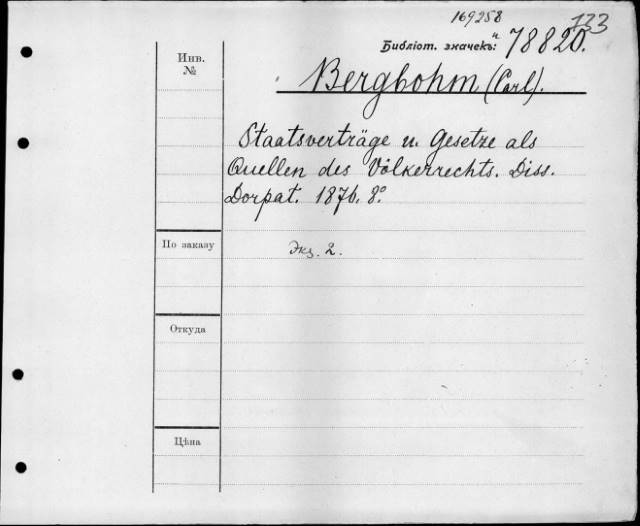 169258 133
Библіот. значекъ: и 78820.
Инв.
№
Bergbohm (Carl).
Staatsverträge u. Gesetze als
Quellen des Völkerrechts. Diss.
Dorpat. 1876. 8°
По заказу
Экз. 2.
Откуда
Цѣна